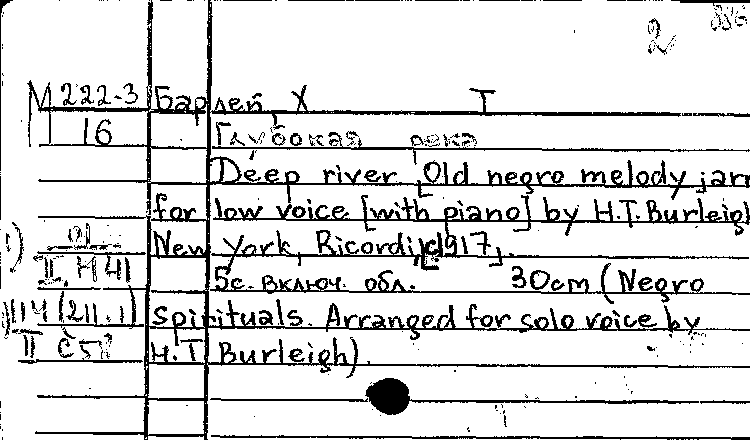 2
M 222-3 Барлей, Х Т
16 Глубокая река
Deep river, Old negro melody [arr
for low voice [with piano] by H.T. Burleigh
New York, Ricordi, [c1917].
II, H 41 5с. включ. обл. 30cm (Negro
spirituals. Arranged for solo voice by
H.T Burleigh).